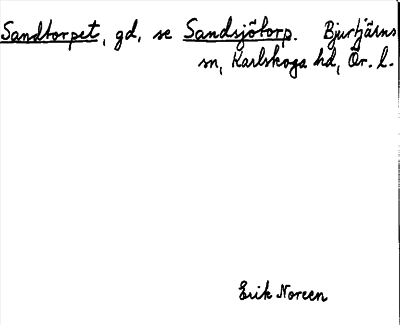 Sandtorpet, gd, se Sandsjötorp. Bjurtjärns
sn, Karlskoga hd, Ör. l.
Erik Noreen